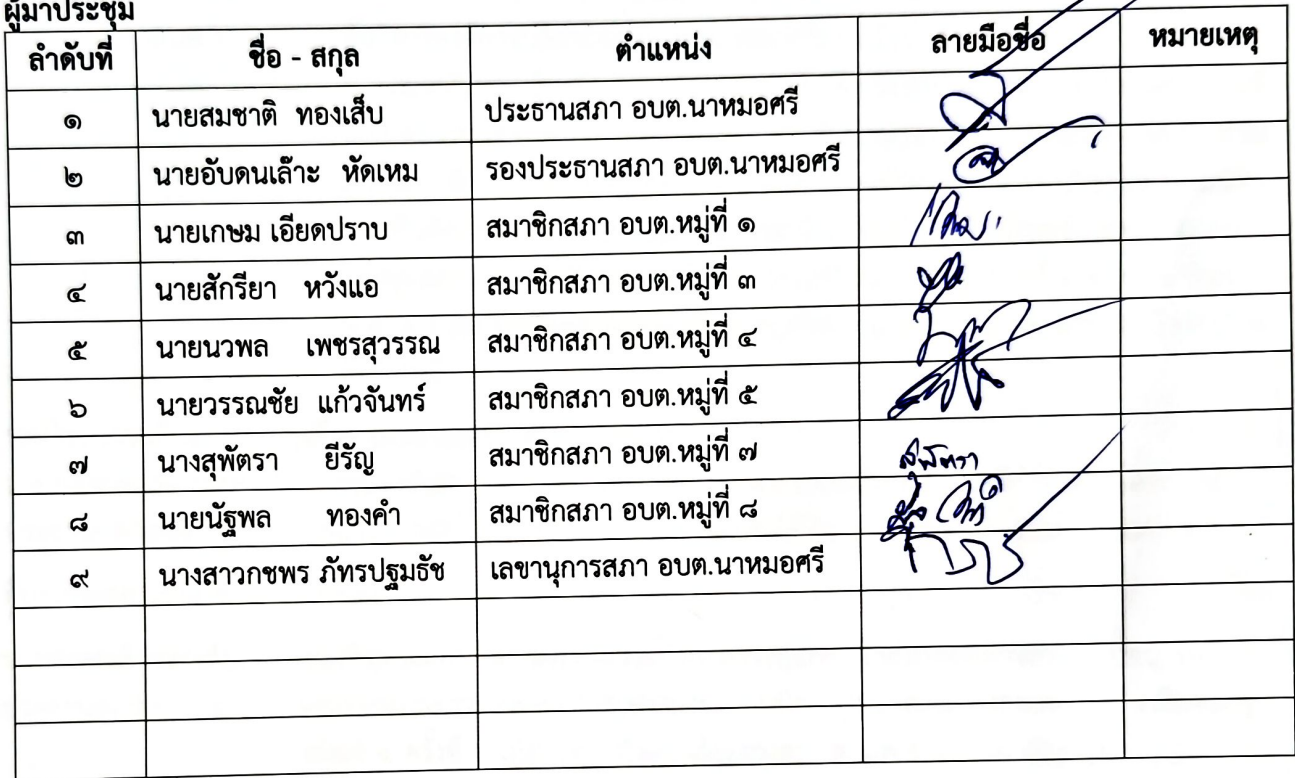 ผู้มาประชุม
ลำดับที่ ชื่อ - สกุล ตำแหน่ง ลายมือชื่อ หมายเหตุ
๑ นายสมชาติ ทองเส็บ ประธานสภา อบต.นาหมอศรี
๒ นายอับดนเล๊าะ หัดเหม รองประธานสภา อบต.นาหมอศรี
๓ นายเกษม เอียดปราบ สมาชิกสภา อบต.หมู่ที่ ๑
๔ นายสักรียา หวังแอ สมาชิกสภา อบต.หมู่ที่ ๓
๕ นายนวพล เพชรสุวรรณ สมาชิกสภา อบต.หมู่ที่ ๔
๖ นายวรรณชัย แก้วจันทร์ สมาชิกสภา อบต.หมู่ที่ ๕
๗ นางสุพัตรา ยีรัญ สมาชิกสภา อบต.หมู่ที่ ๗ สุพัตรา
๘ นายนัฐพล ทองคำ สมาชิกสภา อบต.หมู่ที่ ๘
๙ นางสาวกชพร ภัทรปฐมธัช เลขานุการสภา อบต.นาหมอศรี